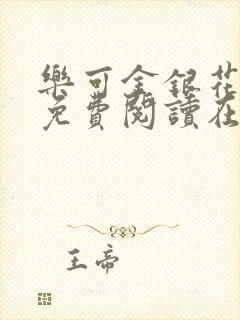 樂可金銀花
免費閱讀在
王帝